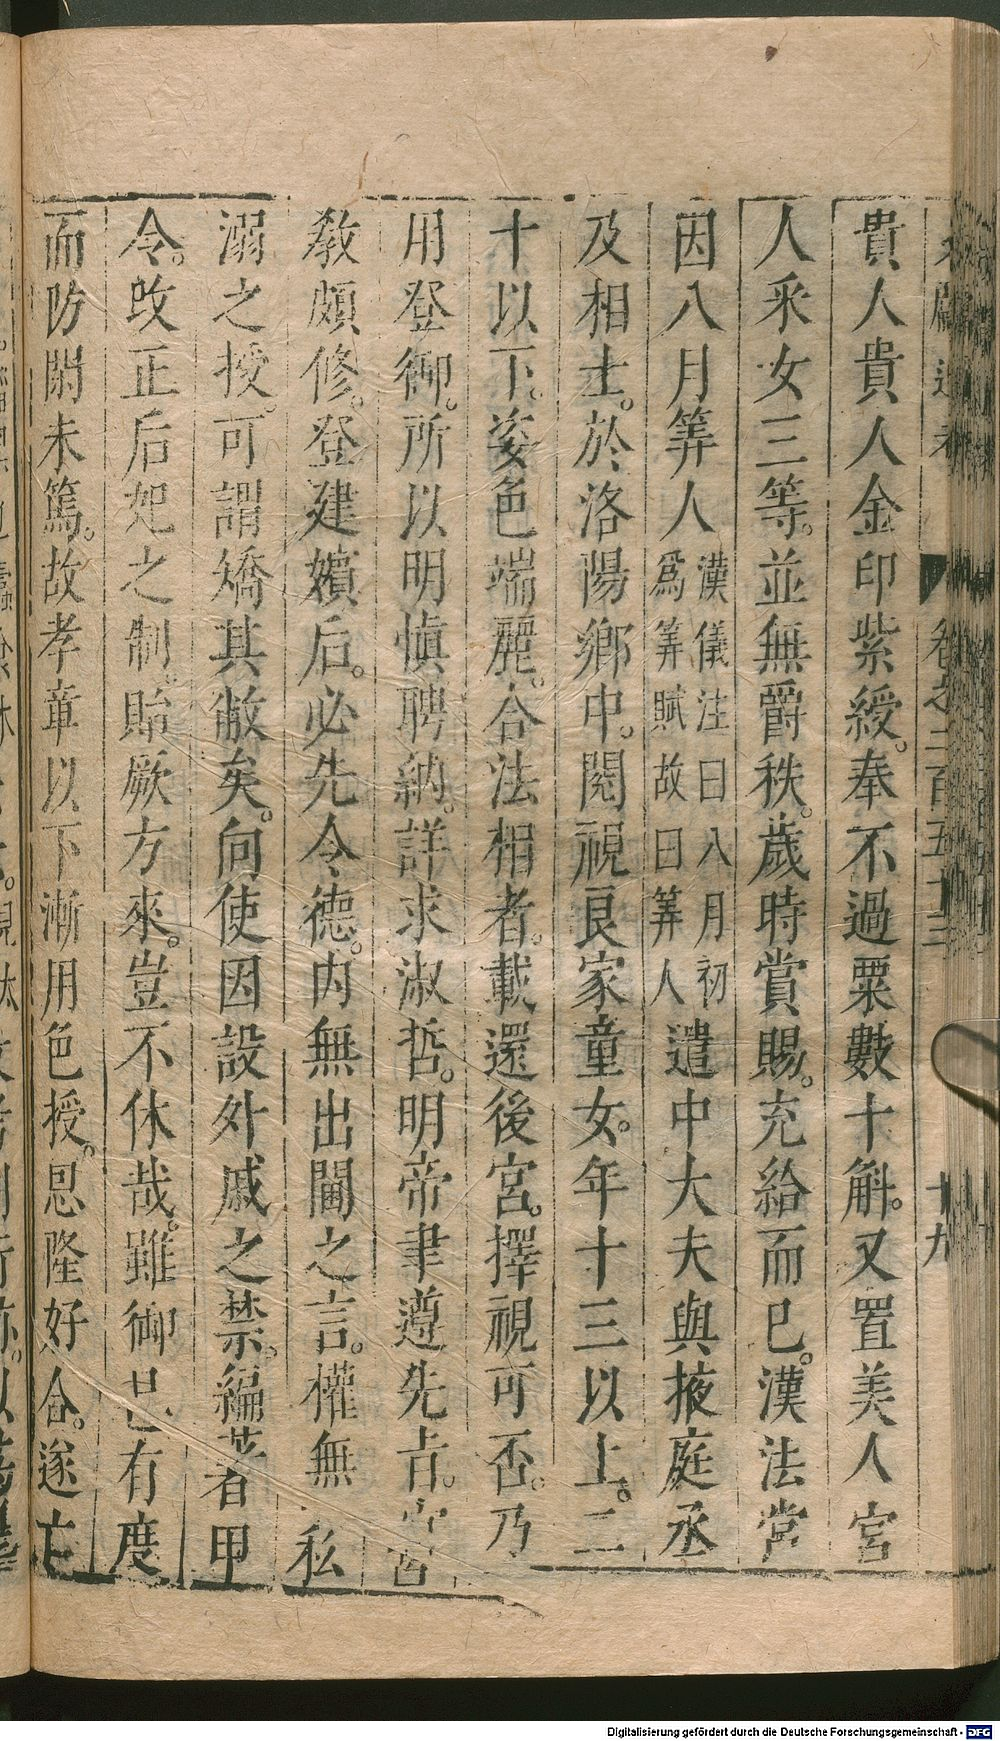 貴人貴人金印紫綬。奉不過粟數十斛。又置美人宮
人釆女三等。並無爵秩。歲時賞賜。充給而已。漢法常
因八月筭人漢儀注曰八月初為筭賦故曰筭人遣中大夫與掖庭丞
及相士。於洛陽鄉中。閱視良家童女。年十三以上。二
十以下。姿色端麗。合法相者。載還後宮。擇視可否。乃
用登御。所以明慎聘納。詳求淑哲。明帝聿遵先旨。宮
教頗修。登建嬪后。必先令德。內無出閫之言。權無私
溺之授。可謂矯其敝矣。向使因設外戚之禁。編著甲
令。改正后妃之制。貽厥方來。豈不休哉。雖御已有度
而防閑未篤。故孝章以下漸用色授。恩隆好合。遂亡
卷之二百五十三
十九
Digitalisierung gefördert durch die Deutsche Forschungsgemeinschaft - DFG